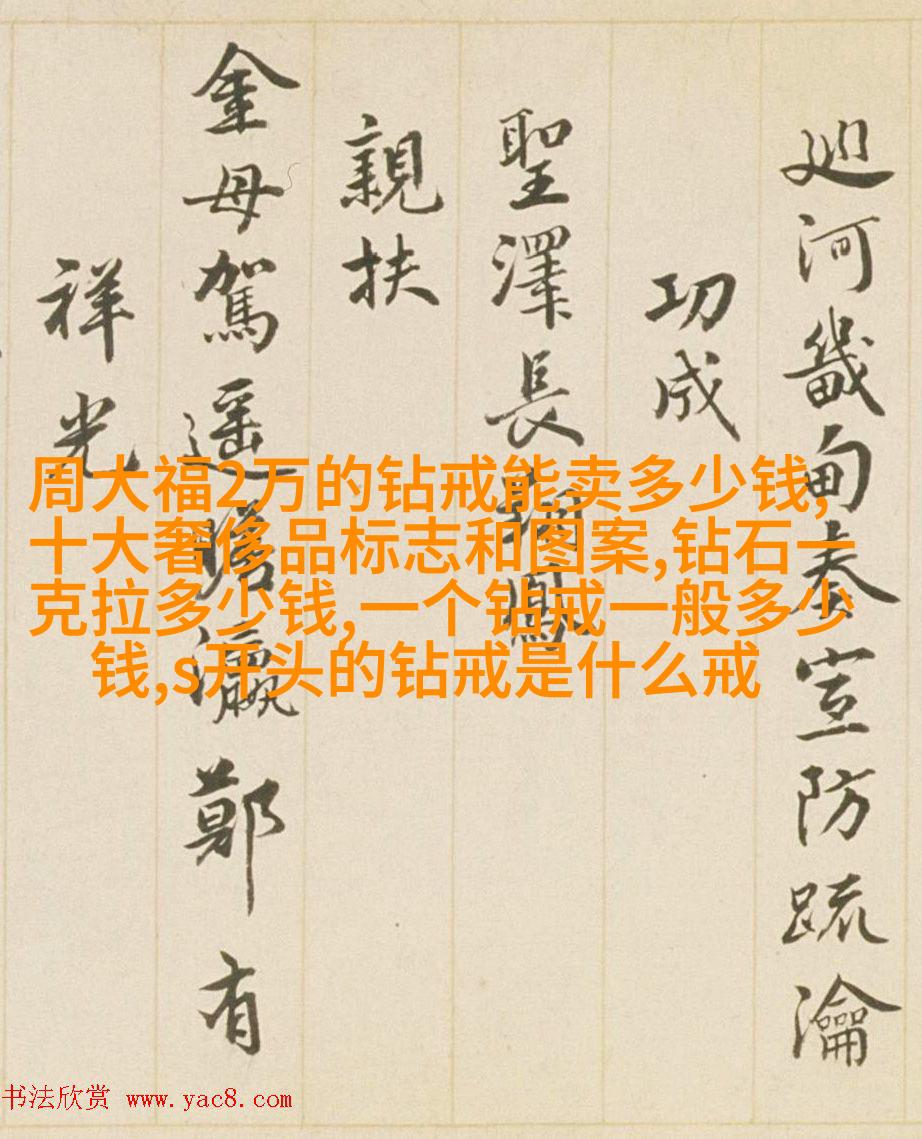 廵河畿甸奏宣防疏瀹
功成
聖澤長鳳
親扶
金母駕遥瞻瀛鄭有
祥光
周大福2万的钻戒能卖多少钱,
十大奢侈品标志和图案,钻石一
克拉多少钱,一个钻戒一般多少
钱,s开头的钻戒是什么戒
书法欣赏 www.yac8.com